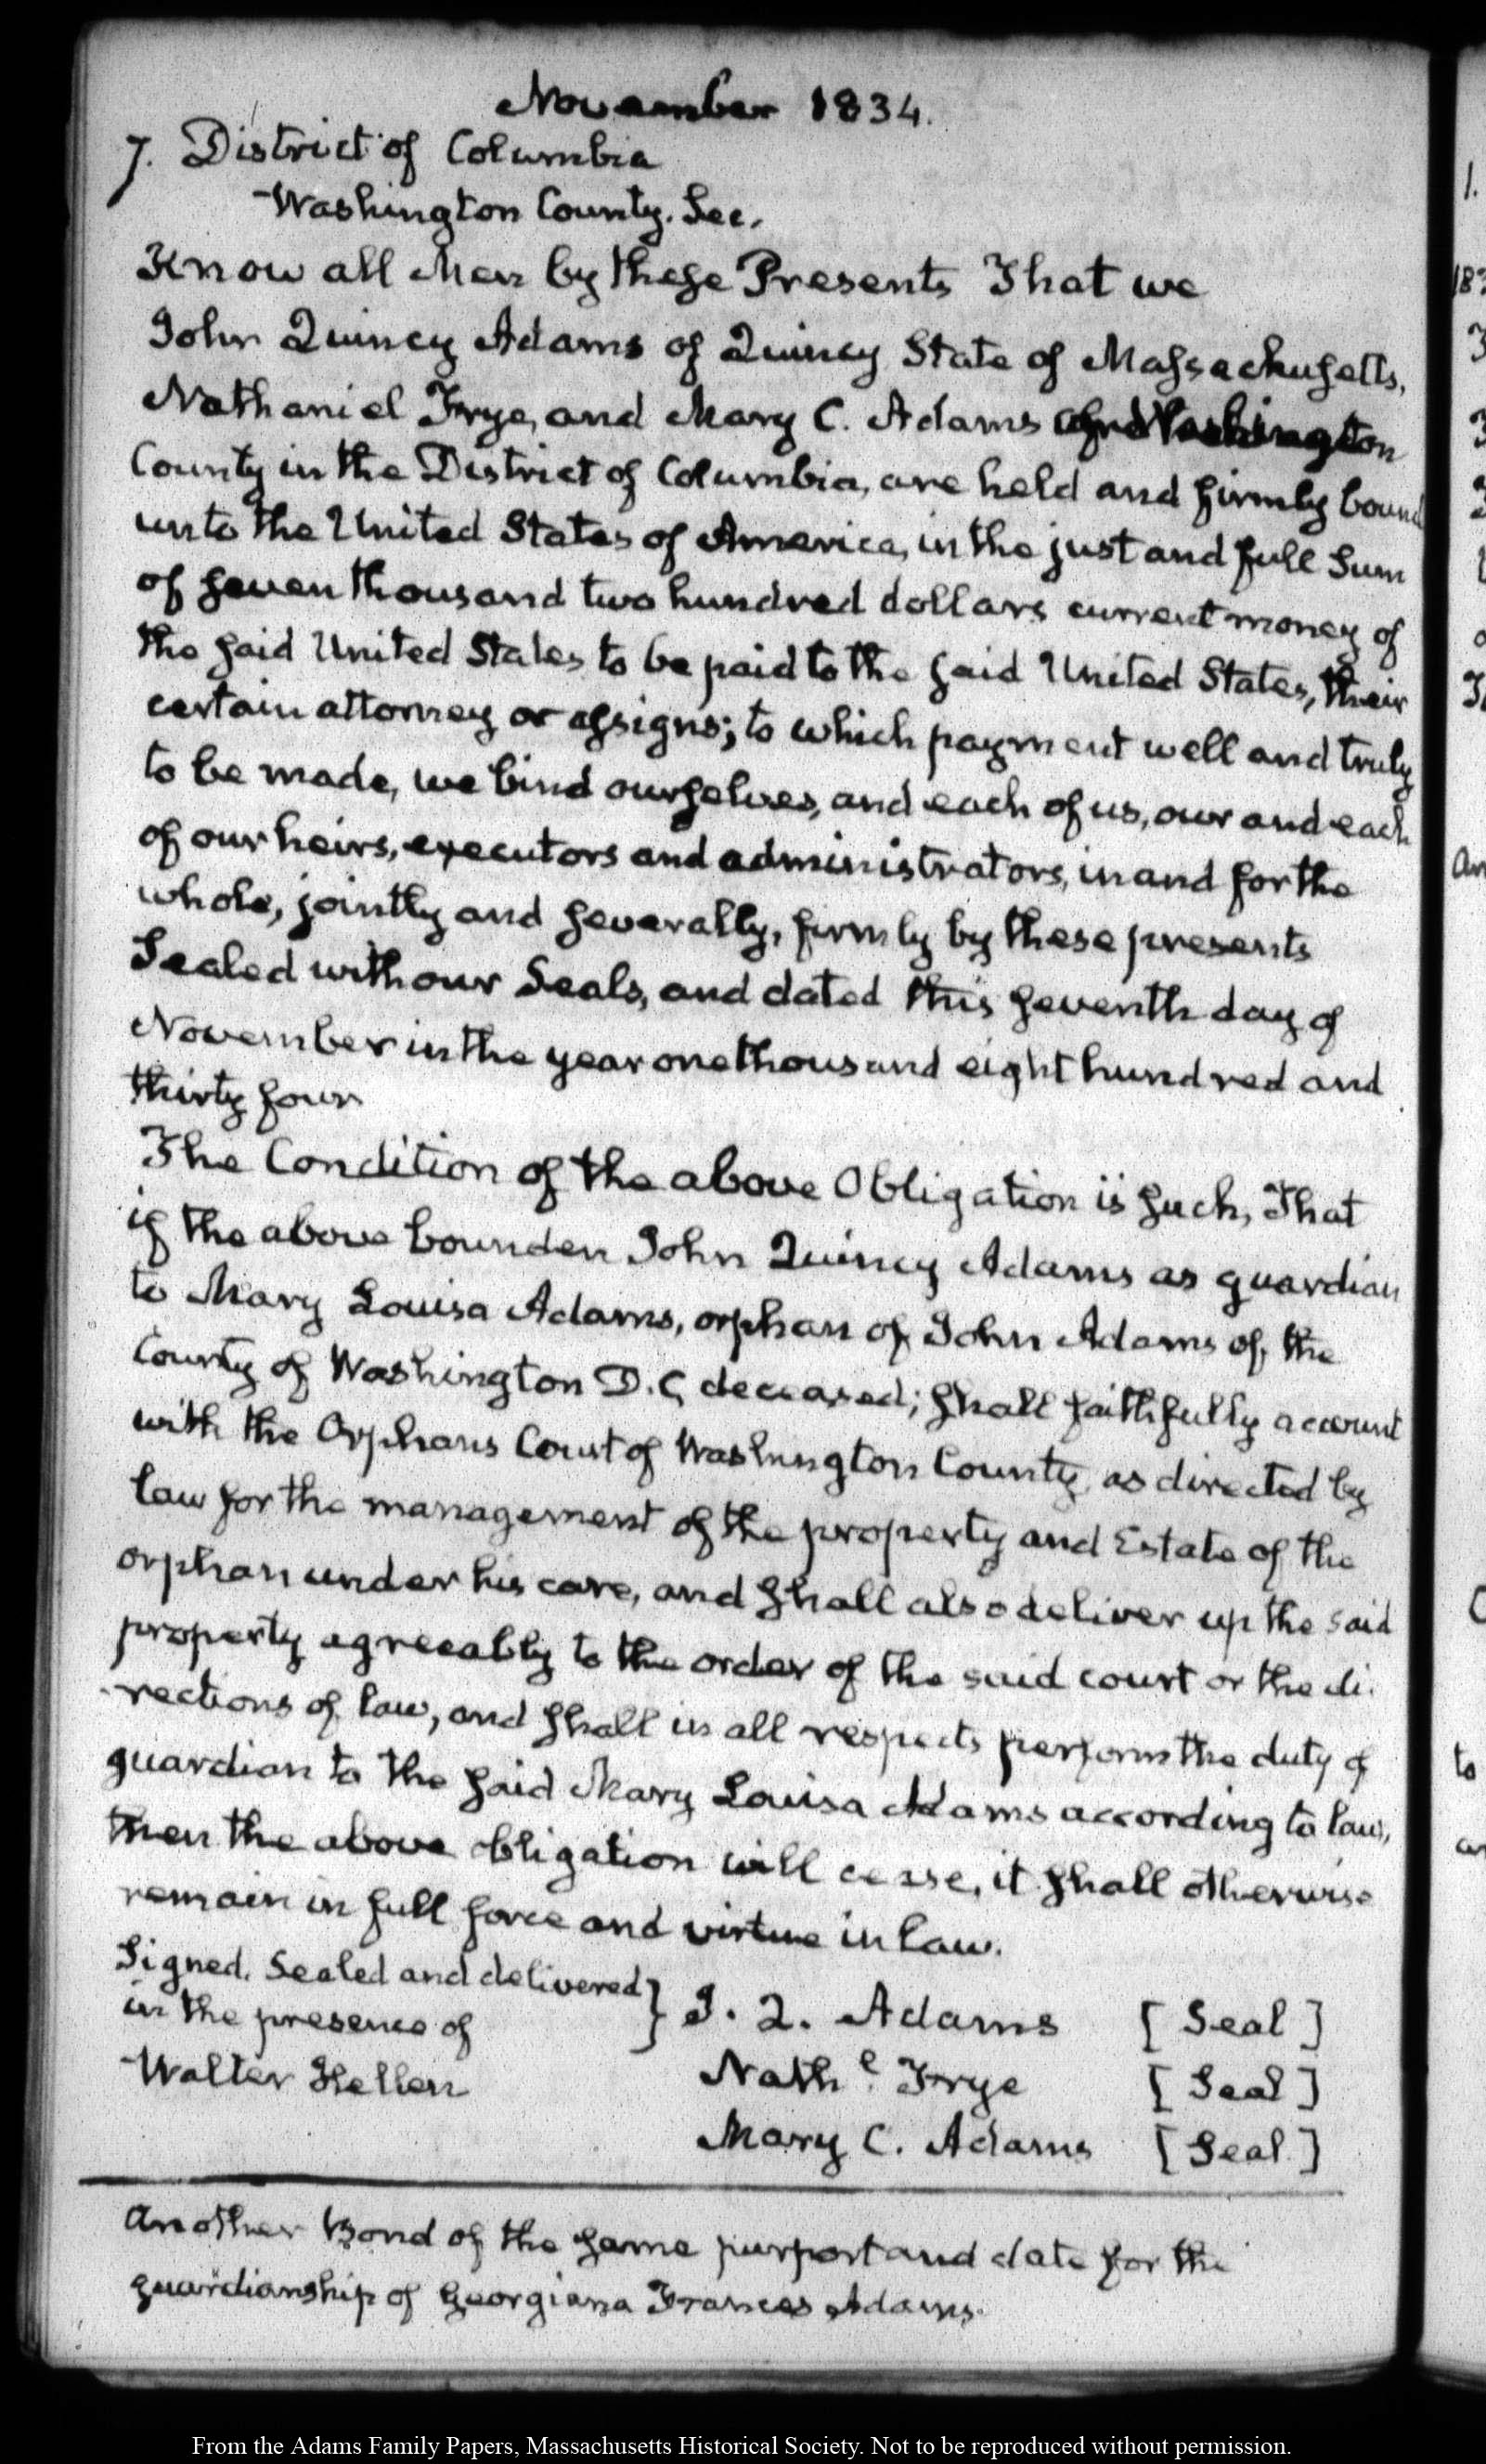 November 1834.
7. District of Columbia
Washington County. Sec.
Know all Men by these Presents That we
John Quincy Adams of Quincy State of Massachusetts,
Nathaniel Frye, and Mary C. Adams of Washington
County in the District of Columbia, are held and firmly bound
unto the United States of America, in the just and full Sum
of seven thousand two hundred dollars current money of
the said United States to be paid to the said United States, their
certain attorney or assigns; to which payment well and truly
to be made, we bind ourselves, and each of us, our and each
of our heirs, executors and administrators, in and for the
whole, jointly and severally, firmly by these presents
Sealed with our Seals, and dated this seventh day of
November in the year one thousand eight hundred and
thirty four
The Condition of the above Obligation is such, That
if the above bounden John Quincy Adams as guardian
to Mary Louisa Adams, orphan of John Adams of the
County of Washington D.C, deceased; shall faithfully account
with the Orphans Court of Washington County, as directed by
law for the management of the property and Estate of the
orphan under his care, and shall also deliver up the said
property agreeably to the order of the said court or the di-
rections of law, and shall in all respects perform the duty of
guardian to the said Mary Louisa Adams according to law,
then the above obligation will cease, it shall otherwise
remain in full force and virtue in law.
Signed, Sealed and delivered } J. Q. Adams [Seal]
in the presence of
Walter Hellen Nathl. Frye [Seal]
Mary C. Adams [Seal]
Another Bond of the same purport and date for the
guardianship of Georgiana Frances Adams.
From the Adams Family Papers, Massachusetts Historical Society. Not to be reproduced without permission.